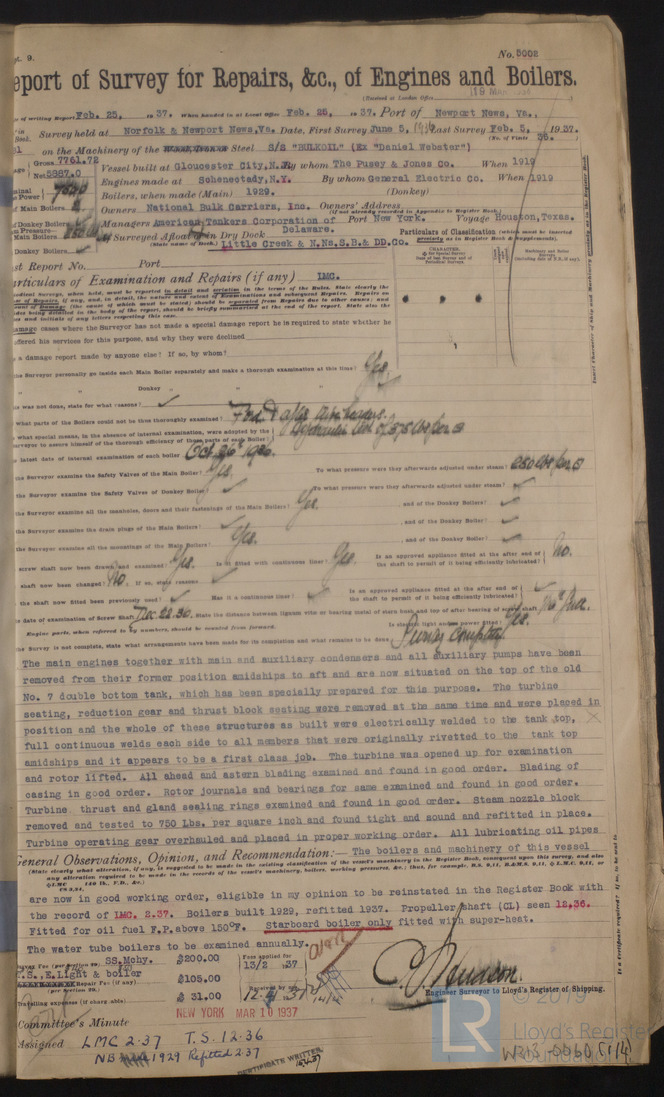 pt. 9. No. 5002
eport of Survey for Repairs, &c., of Engines and Boilers.
(Received at London Office
of writing Report Feb. 25, 1937. When handed in at Local Office Feb. 25, 1937. Port of Newport News, Va.,
Survey held at Norfolk & Newport News, Va. Date, First Survey June 5, 1936 Last Survey Feb. 5, 1937.
(No. of Visits 36.
on the Machinery of the Steel S/S "BULKOIL" (Ex "Daniel Webster")
Gross 7761.72 Vessel built at Gloucester City, N.J. By whom The Pusey & Jones Co. When 1919
Net 5867.0 Engines made at Schenectady, N.Y. By whom General Electric Co. When 1919
Boilers, when made (Main) 1929. (Donkey)
of Main Boilers Owners National Bulk Carriers, Inc. Owners' Address
(if not already recorded in Appendix to Register Book.)
of Donkey Boilers Managers American Tankers Corporation of Delaware. Port New York. Voyage Houston, Texas.
Main Boilers If Surveyed Afloat or in Dry Dock
(State name of Dock.) Little Creek & N.Ns.S.B.& DD.Co.
Donkey Boilers
Particulars of Classification (which must be inserted precisely as in Register Book & Supplements).
st Report No. Port
articulars of Examination and Repairs (if any) LMC.
damage cases where the Surveyor has not made a special damage report he is required to state whether he
offered his services for this purpose, and why they were declined
a damage report made by anyone else? If so, by whom?
the Surveyor personally go inside each Main Boiler separately and make a thorough examination at this time? Yes.
" Donkey " " "
is was not done, state for what reasons?
what parts of the Boilers could not be thus thoroughly examined? Ford & after
what special means, in the absence of internal examination, were adopted by the Hydraulic test of 375 lbs per
surveyor to assure himself of the thorough efficiency of those parts of each Boiler?
latest date of internal examination of each boiler Oct 26th 1936.
the Surveyor examine the Safety Valves of the Main Boiler? Yes. To what pressure were they afterwards adjusted under steam? 250 lbs per
the Surveyor examine the Safety Valves of Donkey Boiler? To what pressure were they afterwards adjusted under steam?
the Surveyor examine all the manholes, doors and their fastenings of the Main Boilers? Yes. , and of the Donkey Boilers?
the Surveyor examine the drain plugs of the Main Boilers? , and of the Donkey Boiler?
the Surveyor examine all the mountings of the Main Boilers? Yes. , and of the Donkey Boiler?
screw shaft now been drawn and examined? Yes. Is it fitted with continuous liner? Yes. Is an approved appliance fitted at the after end of the shaft to permit of it being efficiently lubricated? No.
shaft now been changed? No. If so, state reasons
the shaft now fitted been previously used? Has it a continuous liner? Is an approved appliance fitted at the after end of the shaft to permit of it being efficiently lubricated?
date of examination of Screw Shaft Dec 28.36. State the distance between lignum vitæ or bearing metal of stern bush and top of after bearing of screw shaft
Engine parts, when referred to by numbers, should be counted from forward. Is electric light and/or power fitted? Yes.
the Survey is not complete, state what arrangements have been made for its completion and what remains to be done Survey complete
The main engines together with main and auxiliary condensers and all auxiliary pumps have been
removed from their former position amidships to aft and are now situated on the top of the old
No. 7 double bottom tank, which has been specially prepared for this purpose. The turbine
seating, reduction gear and thrust block seating were removed at the same time and were placed in
position and the whole of these structures as built were electrically welded to the tank top,
full continuous welds each side to all members that were originally rivetted to the tank top
amidships and it appears to be a first class job. The turbine was opened up for examination
and rotor lifted. All ahead and astern blading examined and found in good order. Blading of
casing in good order. Rotor journals and bearings for same examined and found in good order.
Turbine thrust and gland sealing rings examined and found in good order. Steam nozzle block
removed and tested to 750 Lbs. per square inch and found tight and sound and refitted in place.
Turbine operating gear overhauled and placed in proper working order. All lubricating oil pipes
General Observations, Opinion, and Recommendation:— The boilers and machinery of this vessel
(State clearly what alteration, if any, is suggested to be made in the existing classification of the vessel's machinery in the Register Book, consequent upon this survey, and also
any alteration required to be made in the records of the vessel's machinery, boilers, working pressures, &c.; thus, for example,
are now in good working order, eligible in my opinion to be reinstated in the Register Book with
the record of LMC. 2.37. Boilers built 1929, refitted 1937. Propeller shaft (CL) seen 12,36.
Fitted for oil fuel F.P.above 150°F. Starboard boiler only fitted with super-heat.
The water tube boilers to be examined annually.
Survey Fee (per Section 29) SS.Mchy. $200.00 Fees applied for 13/2 37
C.S.,E.Light & boiler Repair Fee (if any) $105.00
(per Section 29.)
Travelling expenses (if chargeable) $ 31.00 Received by me, 12.4.37
Engineer Surveyor to Lloyd's Register of Shipping.
NEW YORK MAR 10 1937
Committee's Minute
Assigned LMC 2.37 T.S. 12.36
NB 1929 Refitted 2.37
CERTIFICATE WRITTEN
© 2019
Lloyd's Register
Foundation
W213-0060 (1/4)